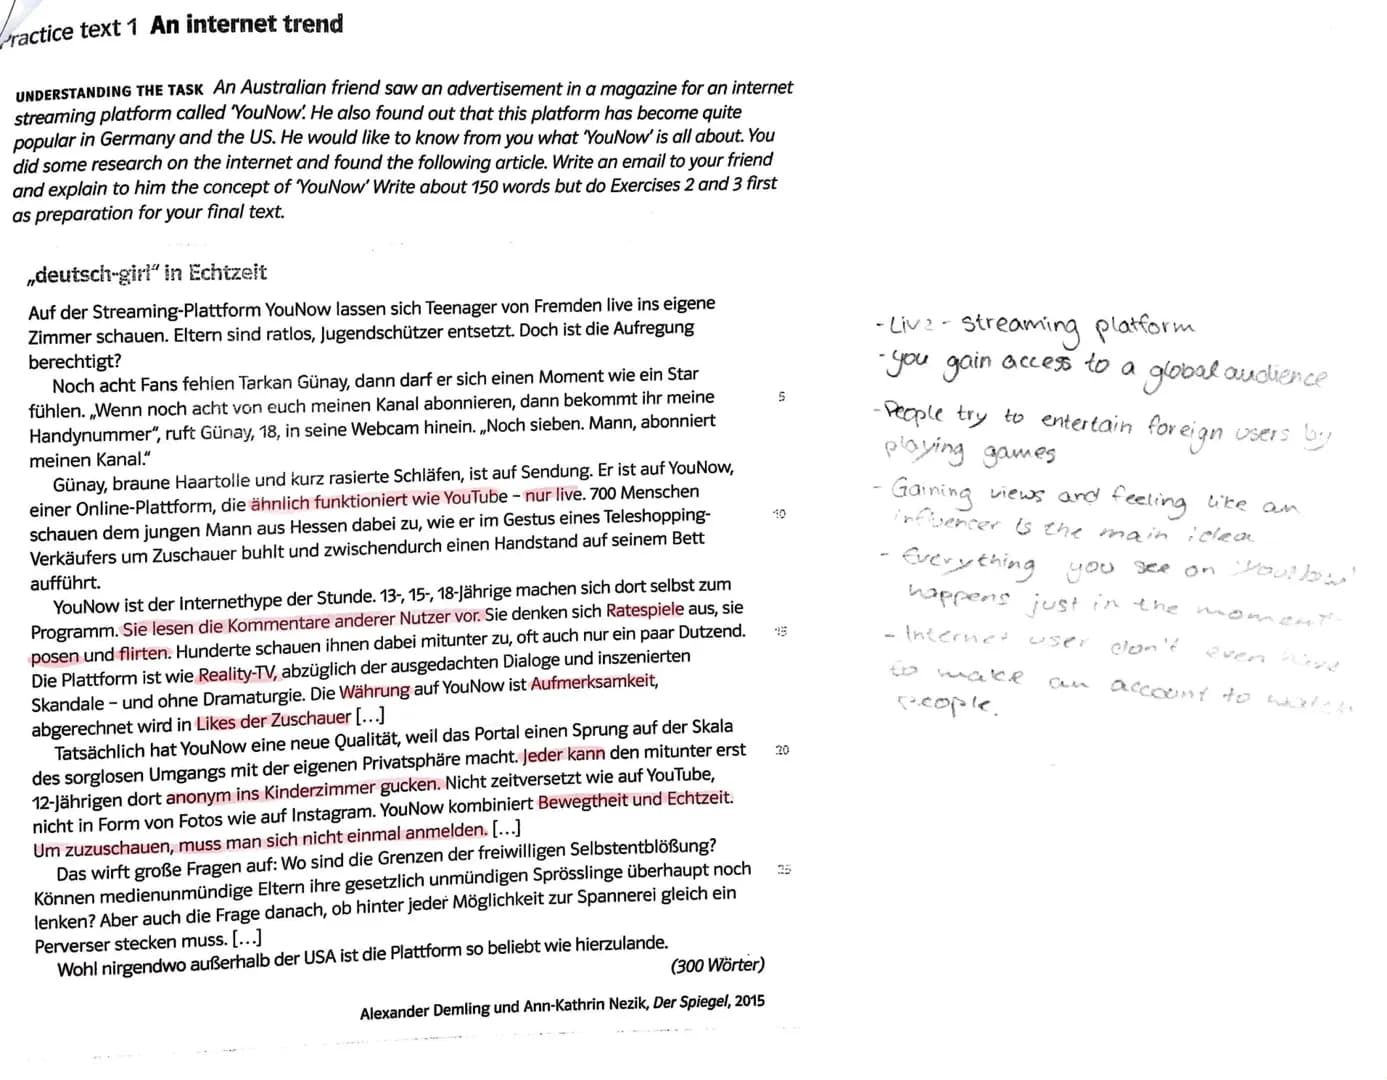 Practice text 1 An internet trend
UNDERSTANDING THE TASK An Australian friend saw an advertisement in a magazine for an internet
streaming platform called 'YouNow'. He also found out that this platform has become quite
popular in Germany and the US. He would like to know from you what 'YouNow' is all about. You
did some research on the internet and found the following article. Write an email to your friend
and explain to him the concept of 'YouNow' Write about 150 words but do Exercises 2 and 3 first
as preparation for your final text.
„deutsch-girl“ in Echtzeit
Auf der Streaming-Plattform YouNow lassen sich Teenager von Fremden live ins eigene
Zimmer schauen. Eltern sind ratlos, Jugendschützer entsetzt. Doch ist die Aufregung
berechtigt?
Noch acht Fans fehlen Tarkan Günay, dann darf er sich einen Moment wie ein Star
fühlen. „Wenn noch acht von euch meinen Kanal abonnieren, dann bekommt ihr meine 5
Handynummer“, ruft Günay, 18, in seine Webcam hinein. „Noch sieben. Mann, abonniert
meinen Kanal.“
Günay, braune Haartolle und kurz rasierte Schläfen, ist auf Sendung. Er ist auf YouNow,
einer Online-Plattform, die ähnlich funktioniert wie YouTube – nur live. 700 Menschen
schauen dem jungen Mann aus Hessen dabei zu, wie er im Gestus eines Teleshopping- 10
Verkäufers um Zuschauer buhlt und zwischendurch einen Handstand auf seinem Bett
aufführt.
YouNow ist der Internethype der Stunde. 13-, 15-, 18-Jährige machen sich dort selbst zum
Programm. Sie lesen die Kommentare anderer Nutzer vor. Sie denken sich Ratespiele aus, sie
posen und flirten. Hunderte schauen ihnen dabei mitunter zu, oft auch nur ein paar Dutzend. 15
Die Plattform ist wie Reality-TV, abzüglich der ausgedachten Dialoge und inszenierten
Skandale – und ohne Dramaturgie. Die Währung auf YouNow ist Aufmerksamkeit,
abgerechnet wird in Likes der Zuschauer [...]
Tatsächlich hat YouNow eine neue Qualität, weil das Portal einen Sprung auf der Skala
des sorglosen Umgangs mit der eigenen Privatsphäre macht. Jeder kann den mitunter erst 20
12-Jährigen dort anonym ins Kinderzimmer gucken. Nicht zeitversetzt wie auf YouTube,
nicht in Form von Fotos wie auf Instagram. YouNow kombiniert Bewegtheit und Echtzeit.
Um zuzuschauen, muss man sich nicht einmal anmelden. [...]
Das wirft große Fragen auf: Wo sind die Grenzen der freiwilligen Selbstentblößung?
Können medienunmündige Eltern ihre gesetzlich unmündigen Sprösslinge überhaupt noch 25
lenken? Aber auch die Frage danach, ob hinter jeder Möglichkeit zur Spannerei gleich ein
Perverser stecken muss. [...]
Wohl nirgendwo außerhalb der USA ist die Plattform so beliebt wie hierzulande.
(300 Wörter)
Alexander Demling und Ann-Kathrin Nezik, Der Spiegel, 2015
- Live - streaming platform
- you gain access to a global audience
- People try to entertain foreign users by
playing games
- Gaining views and feeling like an
influencer is the main idea
- Everything you see on 'YouNow'
happens just in the moment
- Internet user don't even have
to make an account to watch
people.